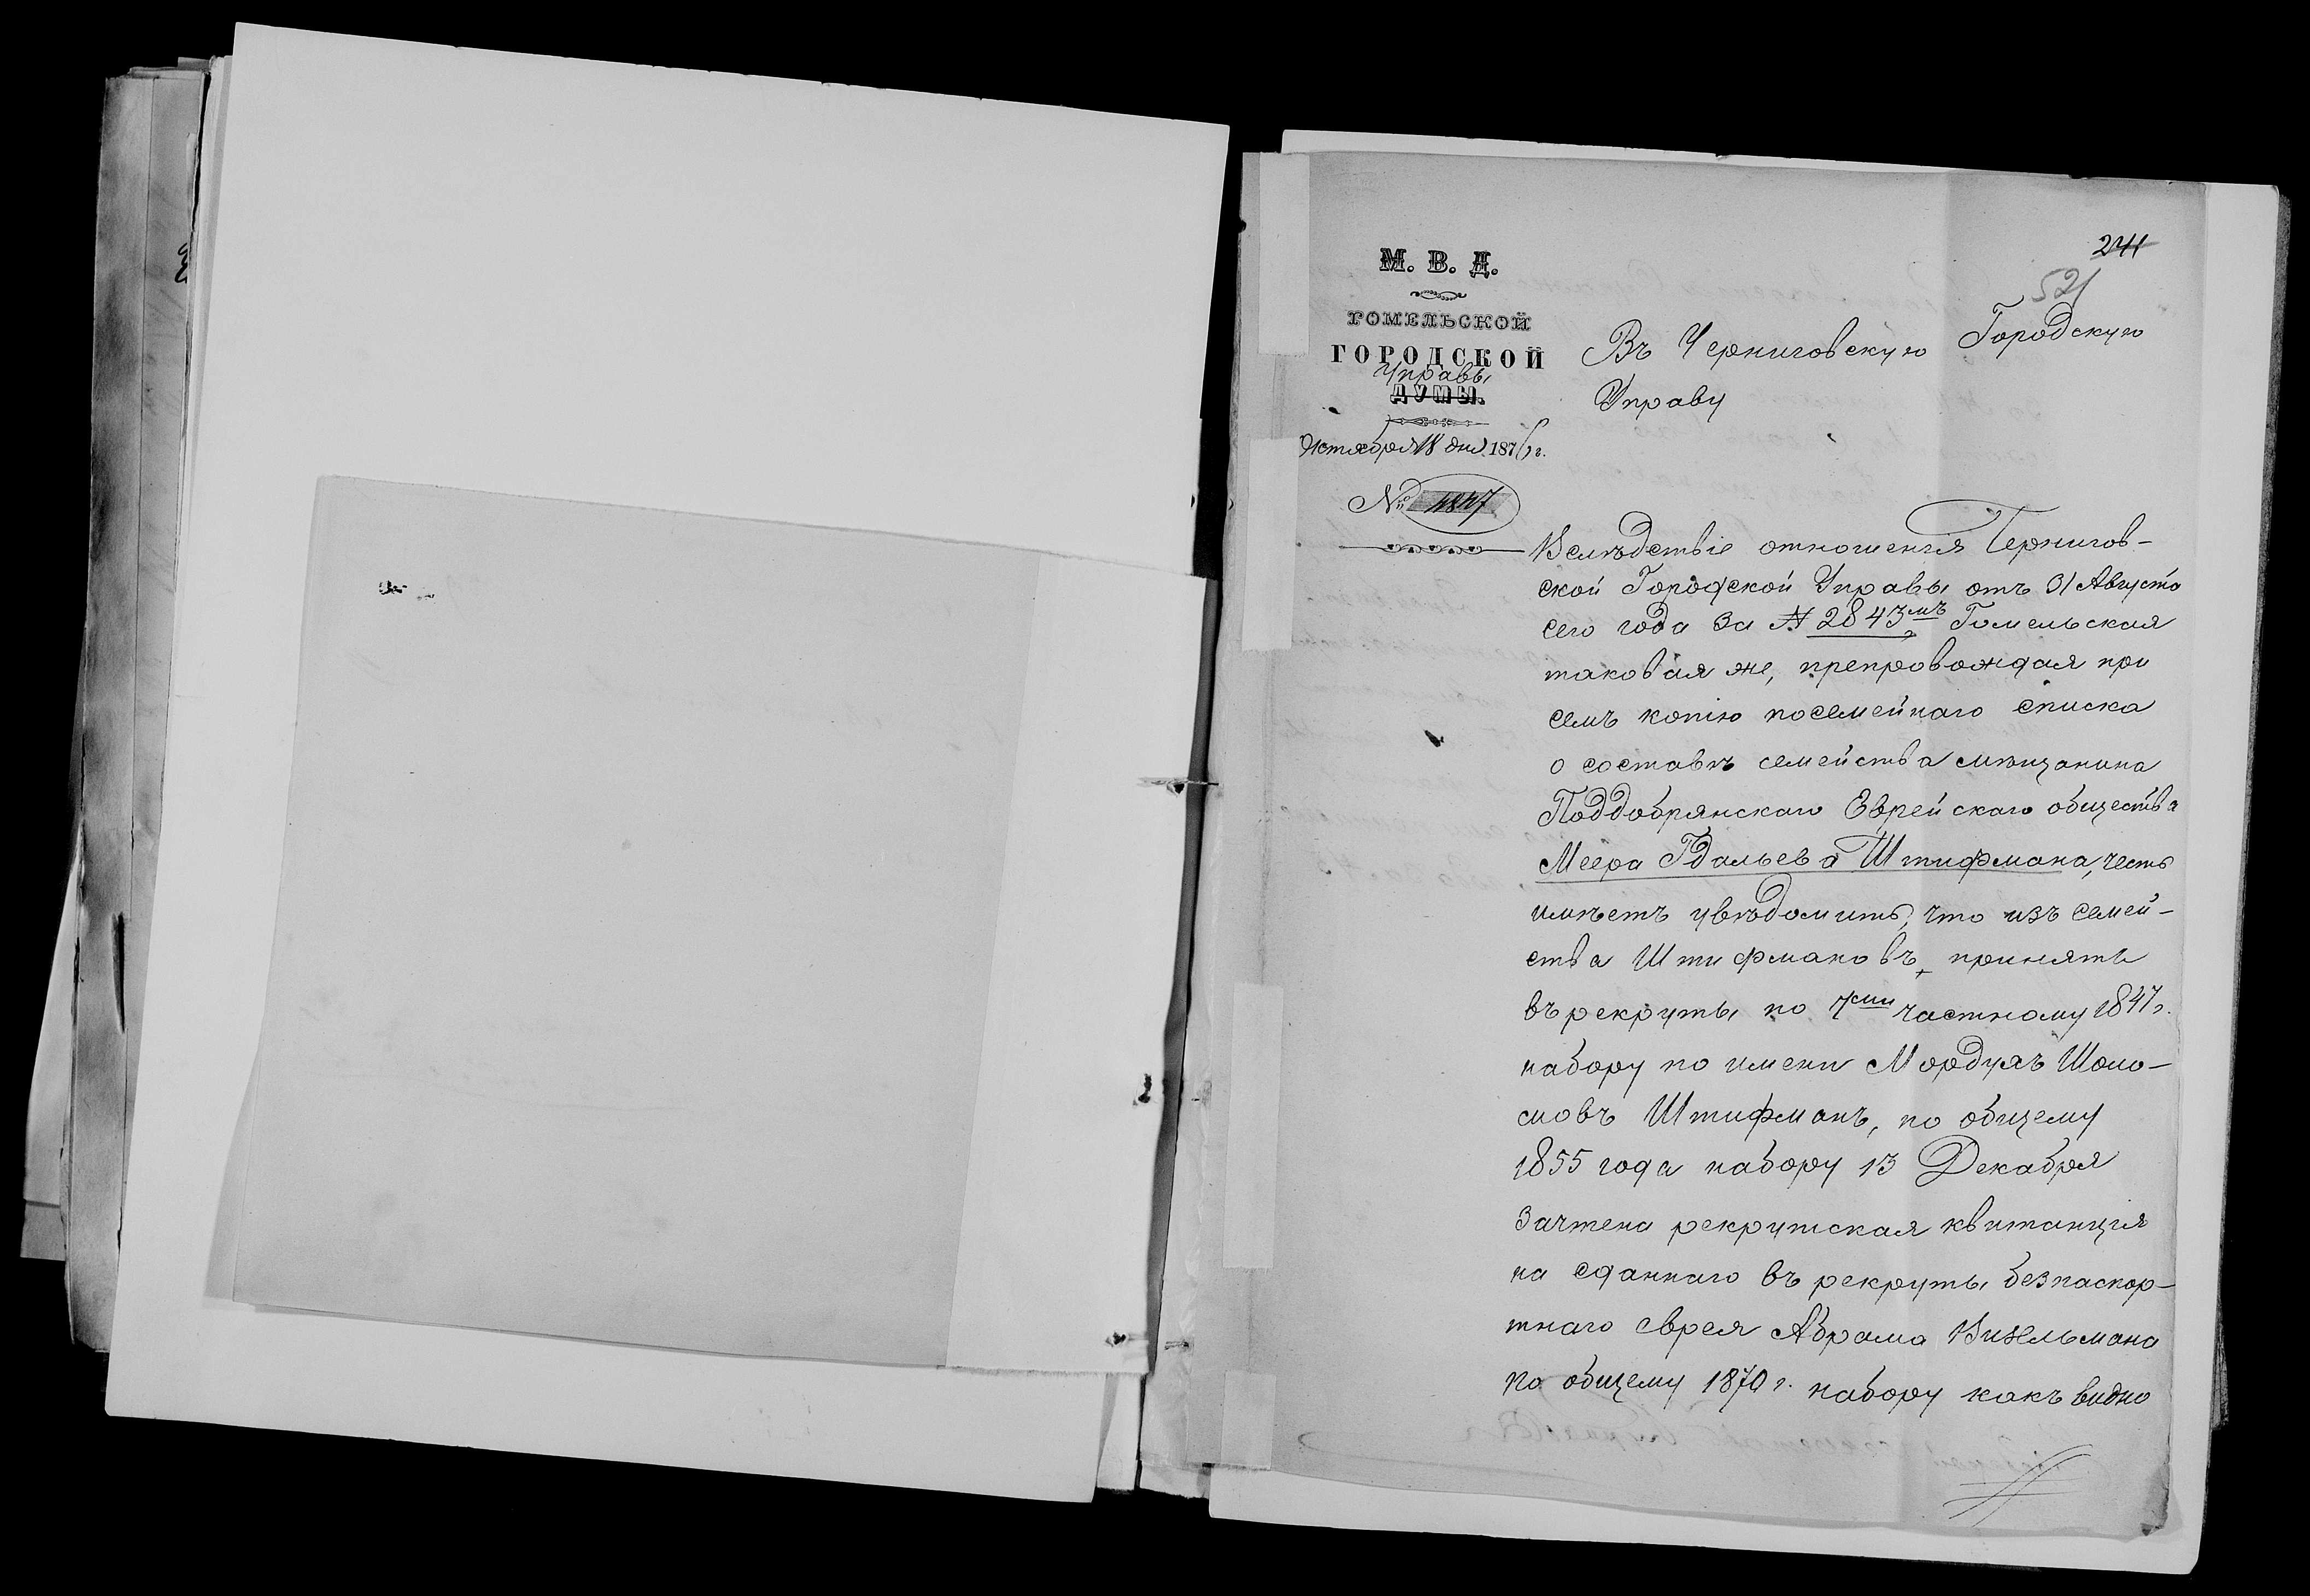 241
521
М. В. Д.
ГОМЕЛЬСКОЙ
ГОРОДСКОЙ
Управы
ДУМЫ.
Октября 18 дня 1876 г.
№ 4847
Въ Черниговскую Городскую
Управу
Вслѣдствіе отношенія Чернигов-
ской Городской Управы отъ 31 Августа
сего года за № 2843мъ Гомельская
таковая же, препровождая при
семъ копію посемейнаго списка
о составѣ семейства мѣщанина
Поддобрянскаго Еврейскаго общества
Меера Гдальева Штифмана, честь
имѣетъ увѣдомить, что изъ семей-
ства Штифмановъ, приняты
въ рекруты по 7ми частному 1847 г.
набору по имени Мордухъ Шоло-
мовъ Штифманъ, по общему
1855 года набору 13 Декабря
Зачтена рекрутская квитанція
на сданнаго въ рекруты безпаспор-
тнаго еврея Абрама Визельмана
по общему 1870 г. набору какъ видно